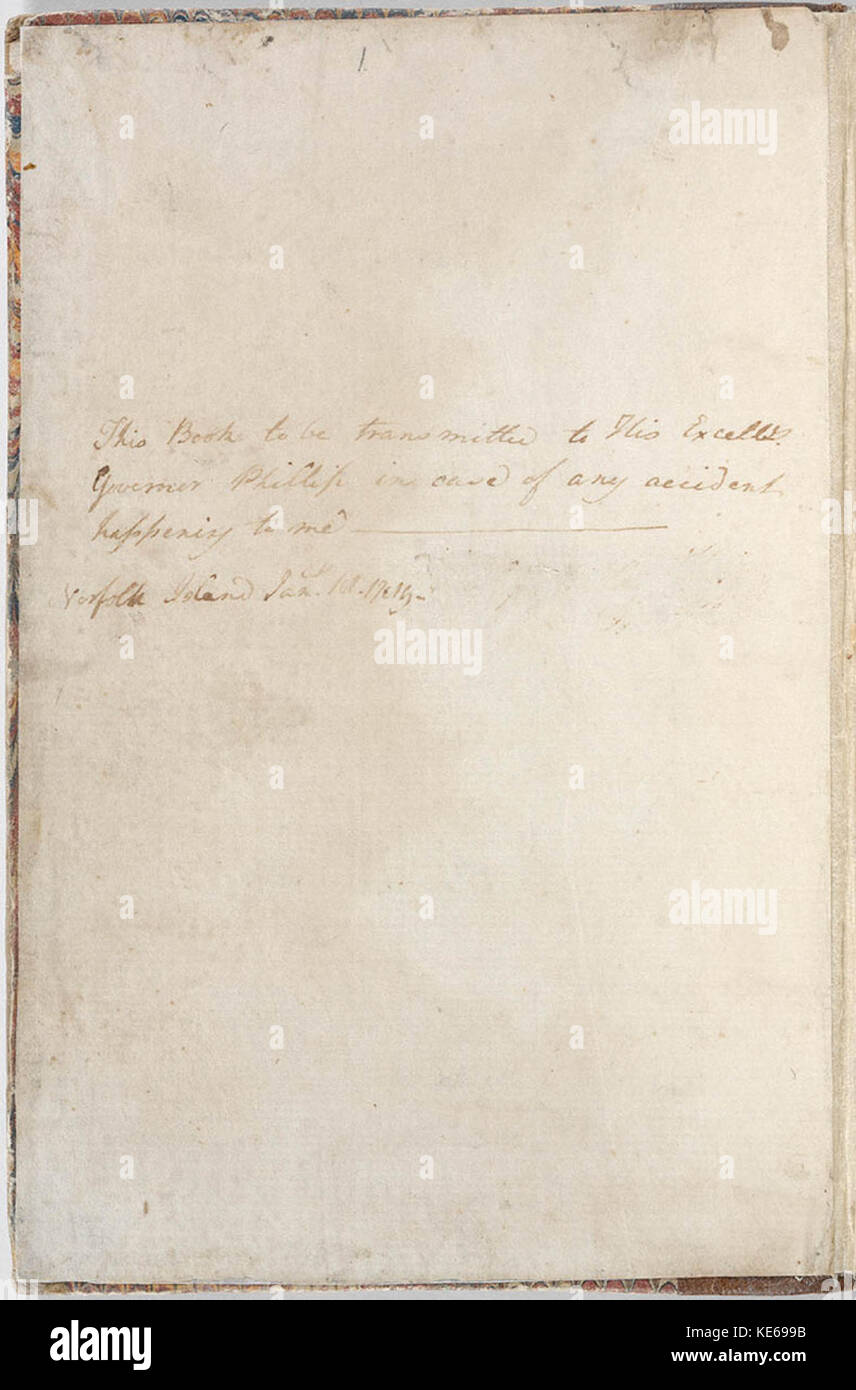 1
This Book to be transmitted to His Excelly.
Governor Phillip in case of any accident
happening to me
Norfolk Island Jan. 1st. 1789
alamy
alamy
a
a
a
alamy stock photo
KE699B
www.alamy.com